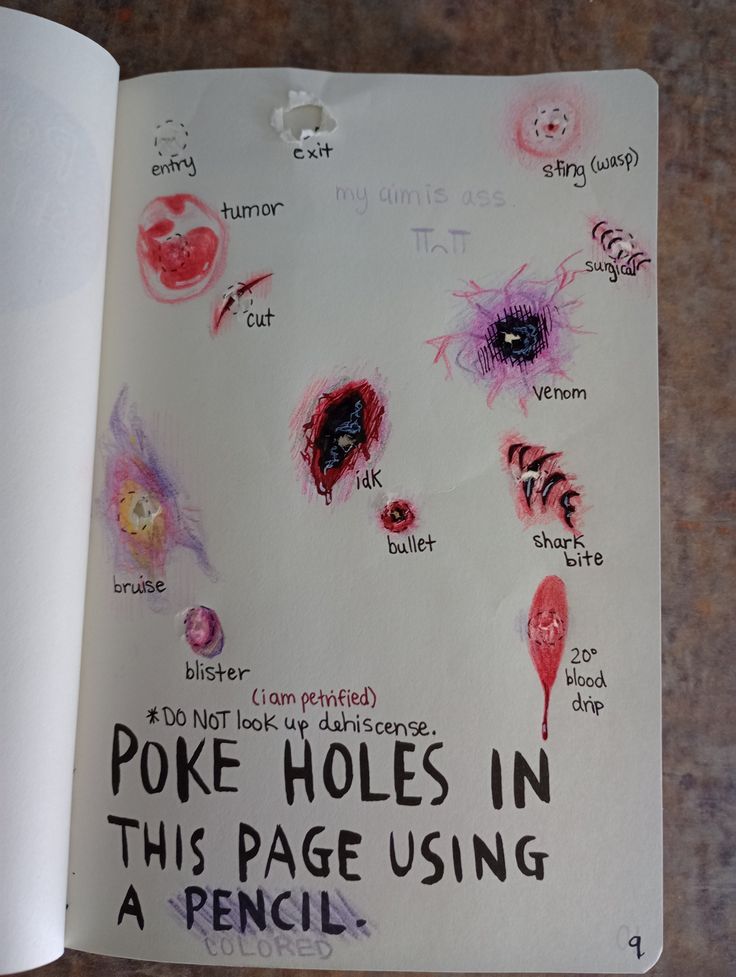 entry
exit
sting (wasp)
tumor
my aim is ass.
surgical
cut
venom
idk
bullet
shark
bite
bruise
blister
20°
blood
drip
(i am petrified)
*DO NOT look up dehiscense.
POKE HOLES IN
THIS PAGE USING
A PENCIL.
COLORED
9